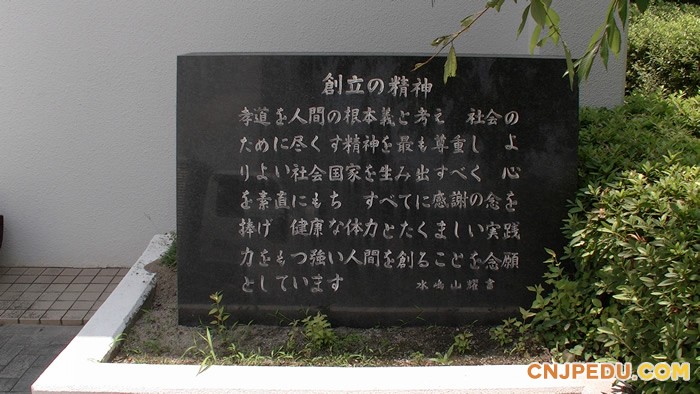 創立の精神
孝道を人間の根本義と考え 社会の
ために尽くす精神を最も尊重し よ
りよい社会国家を生み出すべく 心
を素直にもち すべてに感謝の念を
捧げ 健康な体力とたくましい実践
力をもつ強い人間を創ることを念願
としています
水嶋山耀書
CNJPEDU.COM